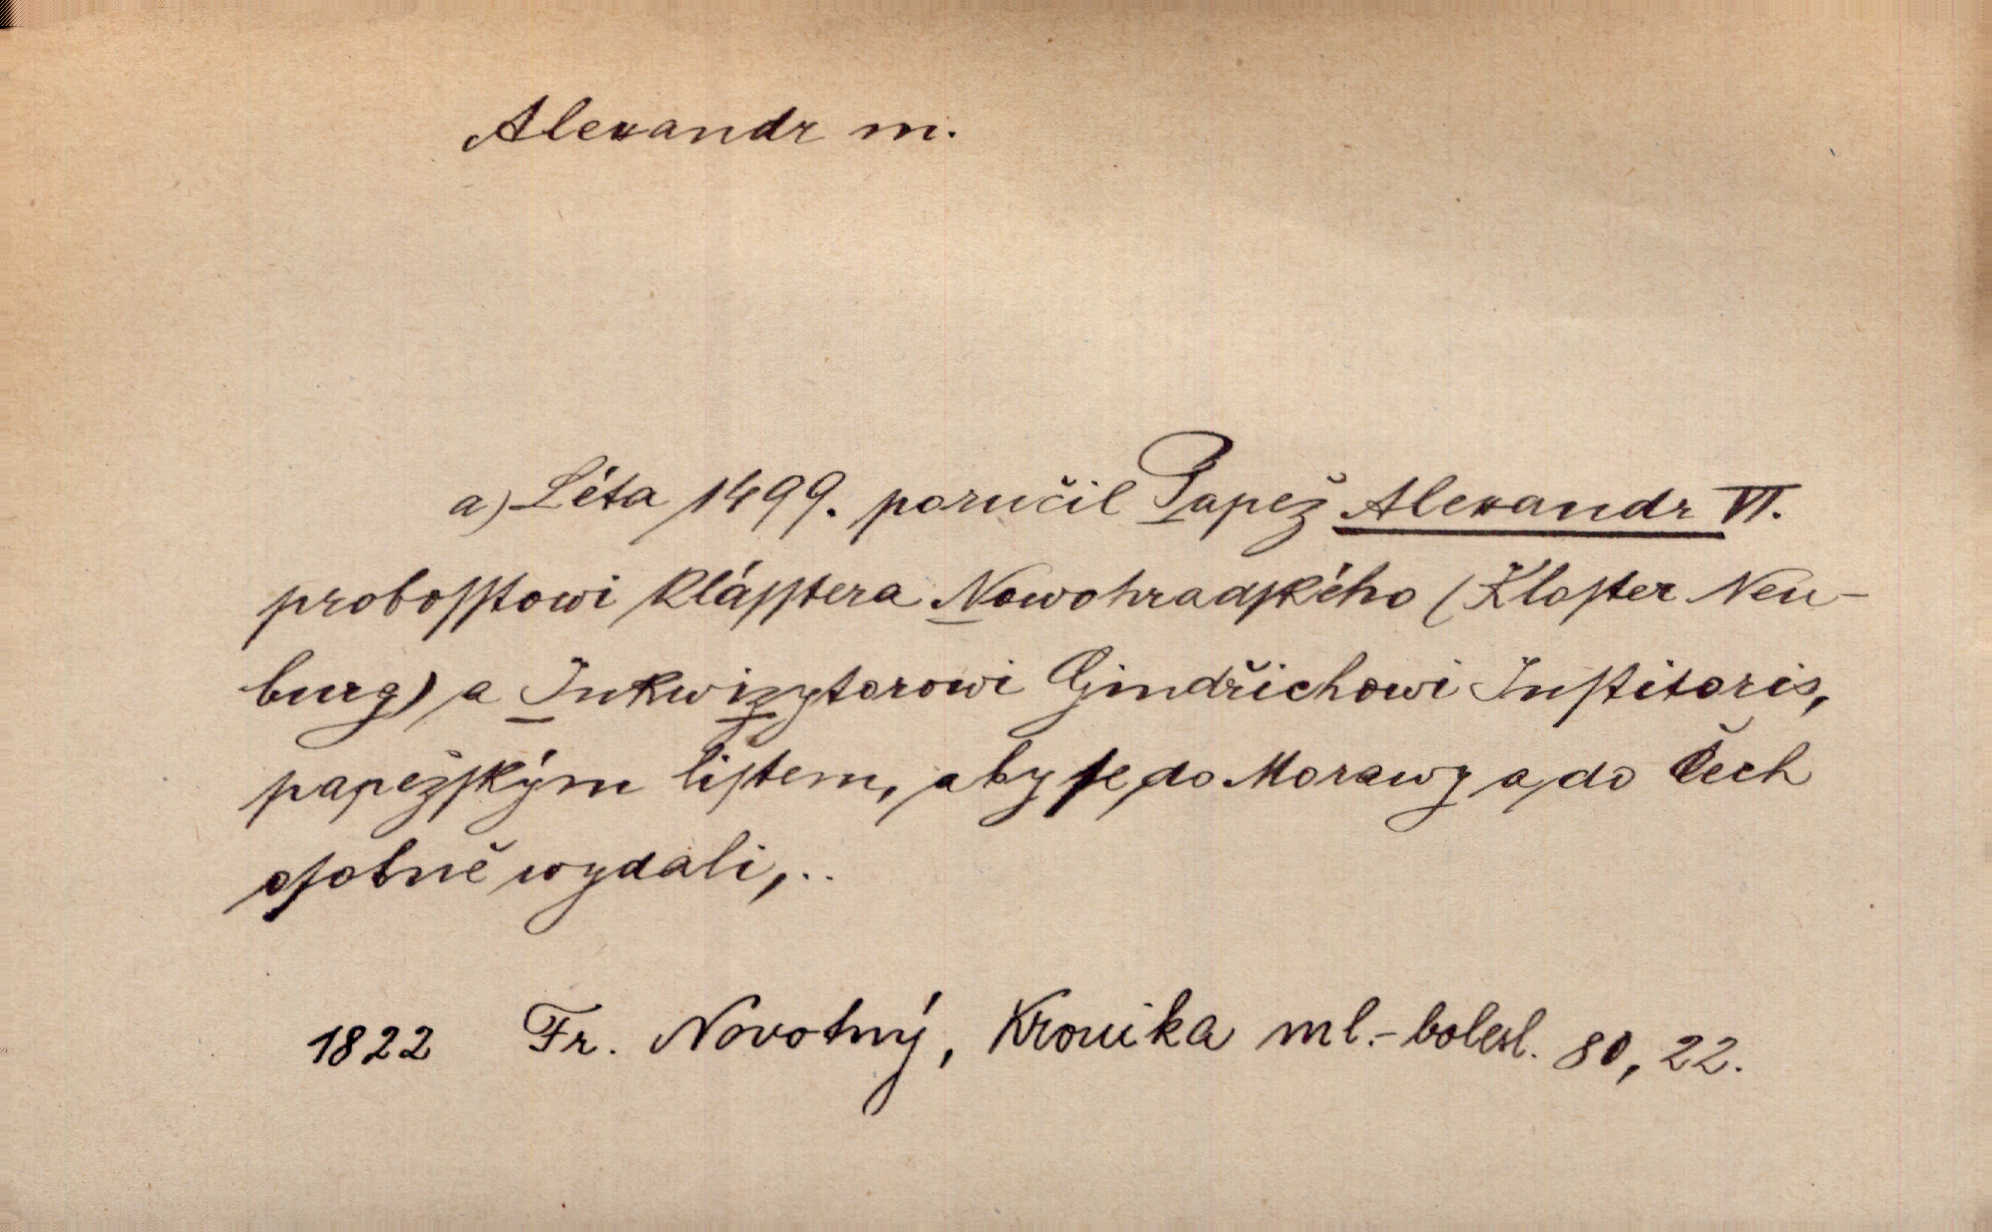 Alexandr m.
a) Léta 1499. poručil Papež Alexandr VI.
probosſtowi kláſſtera Nowohradſkého (Kloſter Neu-
burg) a Inkwizytorowi Gjndřichowi Inſtitoris,
papežſkým liſtem, aby ſe do Morawy a do Čech
oſobně wydali,..
1822 Fr. Novotný, Kronika ml.-bolesl. 80, 22.